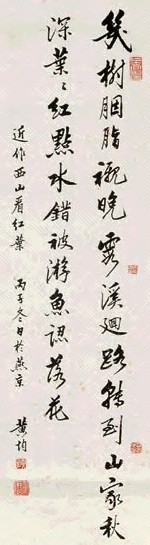 幾樹胭脂襯晚霞溪迴路轉到山家秋
深葉〻紅點水錯被游魚認落花
近作西山看紅葉 丙子冬日於燕京 黃均